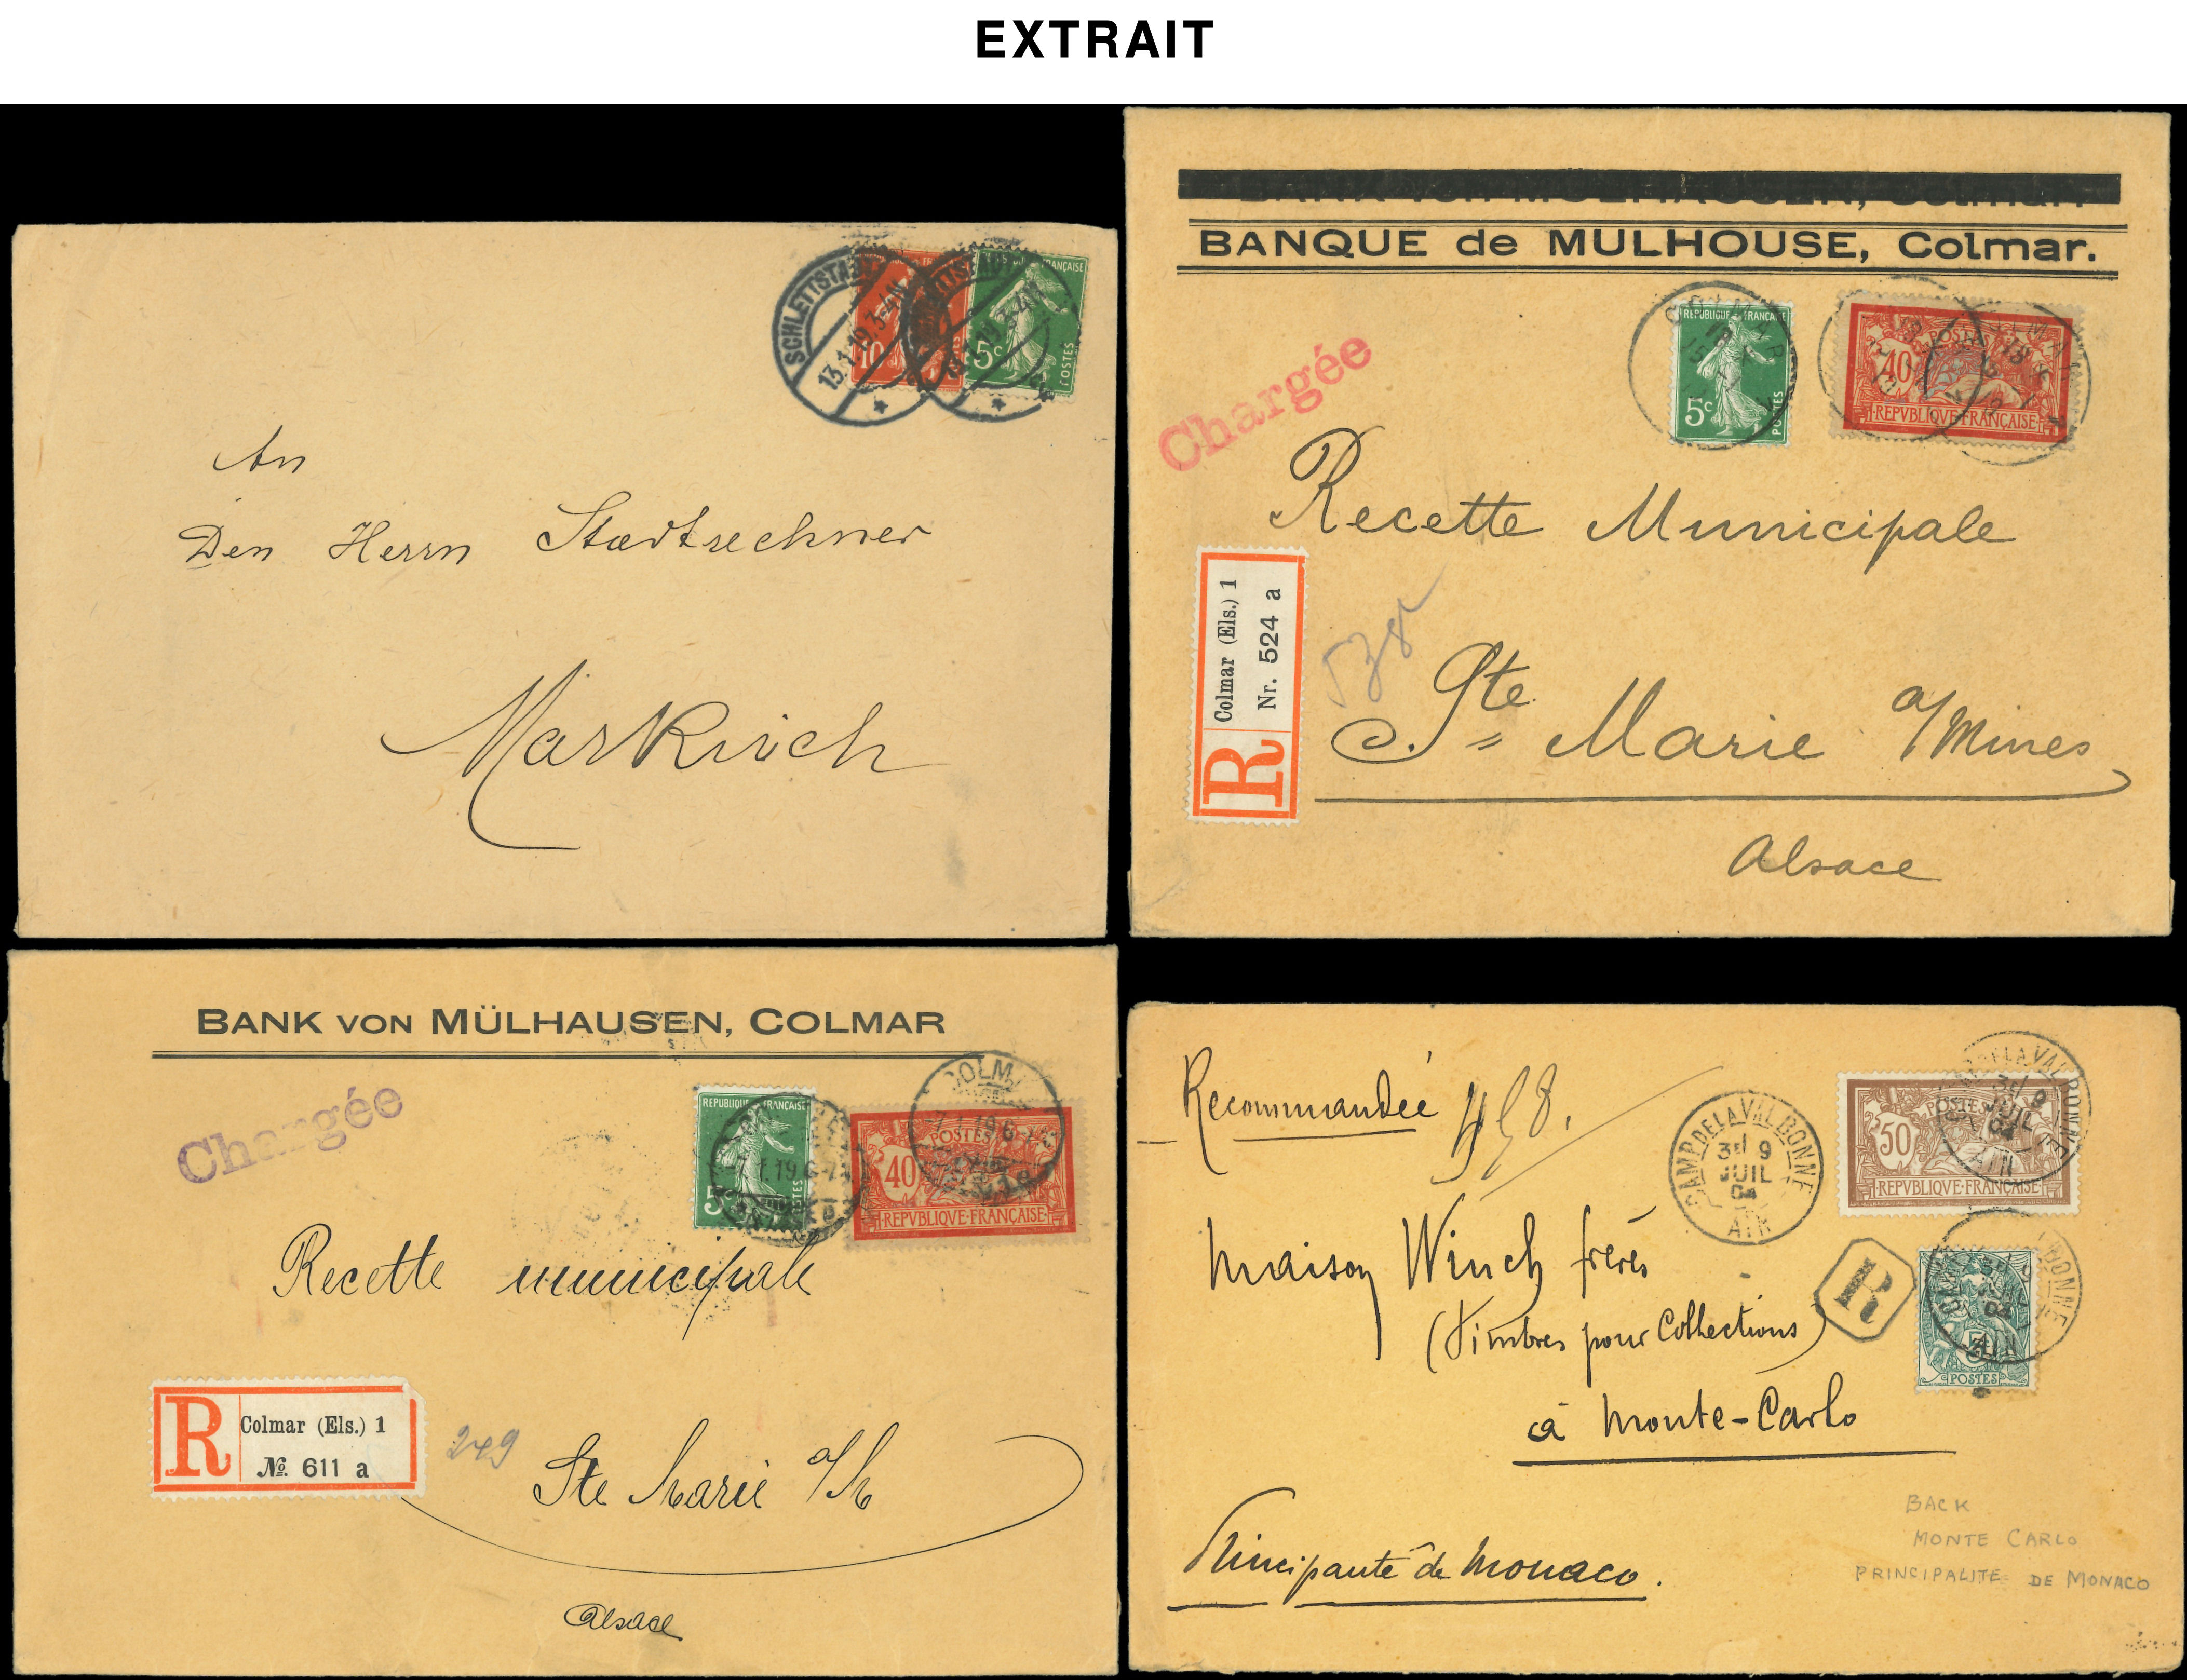 EXTRAIT
SCHLETTSTADT
13.1.19.3-4N
10
5c
POSTES
An
Den Herrn Stadtrechner
Markirch
BANQUE de MULHOUSE, Colmar.
Chargée
COLMAR
REPUBLIQUE FRANÇAISE
5c
POSTES
POSTES
40
REPVBLIQVE FRANÇAISE
Recette Municipale
Colmar (Els.) 1
Nr. 524 a
R
Ste Marie a/Mines
Alsace
BANK VON MÜLHAUSEN, COLMAR
Chargée
REPUBLIQUE FRANÇAISE
POSTES
40
REPVBLIQVE FRANÇAISE
Recette municipale
R
Colmar (Els.) 1
№. 611 a
249
Ste Marie a/M
Alsace
Recommandée 458.
CAMP DE LA VALBONNE
3E 9
JUIL
04
AIN
POSTES
50
REPVBLIQVE FRANÇAISE
Maison Winch frères
R
(Timbres pour Collections)
5
POSTES
à Monte-Carlo
Principauté de Monaco.
BACK
MONTE CARLO
PRINCIPALITE DE MONACO